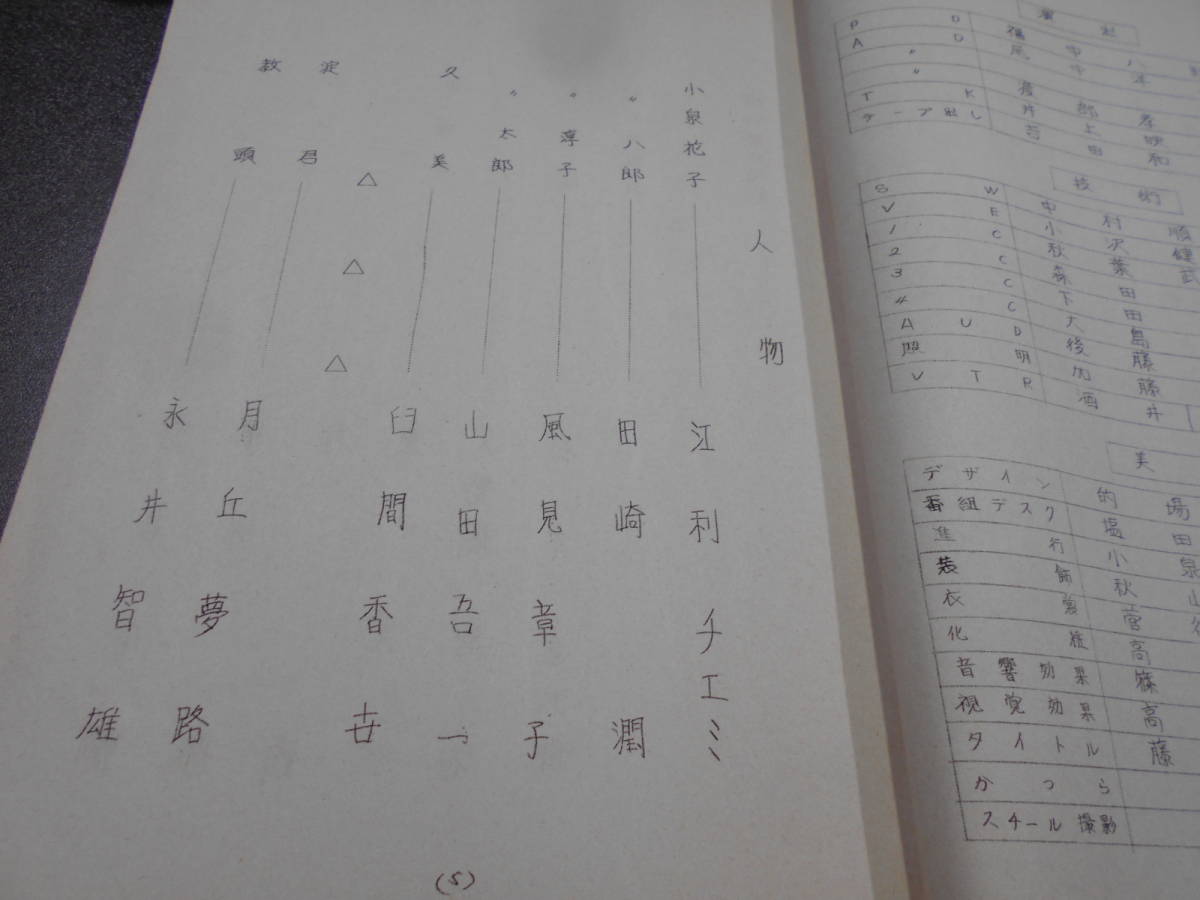 人物
小泉花子 江利チエミ
〃 八郎 田崎潤
〃 淳子 風見章子
〃 太郎 山田吾一
久美 臼間香世
△ △ △
淀君 月丘夢路
教頭 永井智雄
(5)
P D
A D 〃
〃
T K
テープ出し 吉田和
技術
S W 中村順
V E 小沢健
1 C 秋葉武
2 C 森田
3 C 下田
4 C 大島
A U D 後藤
照明 加藤
V T R 酒井
美
デザイン 的場
番組デスク 塩田
進行 小泉
装飾 秋山
衣裳 宮
化粧 高
音響効果 篠
視覚効果 高
タイトル 藤
かつら
スチール撮影